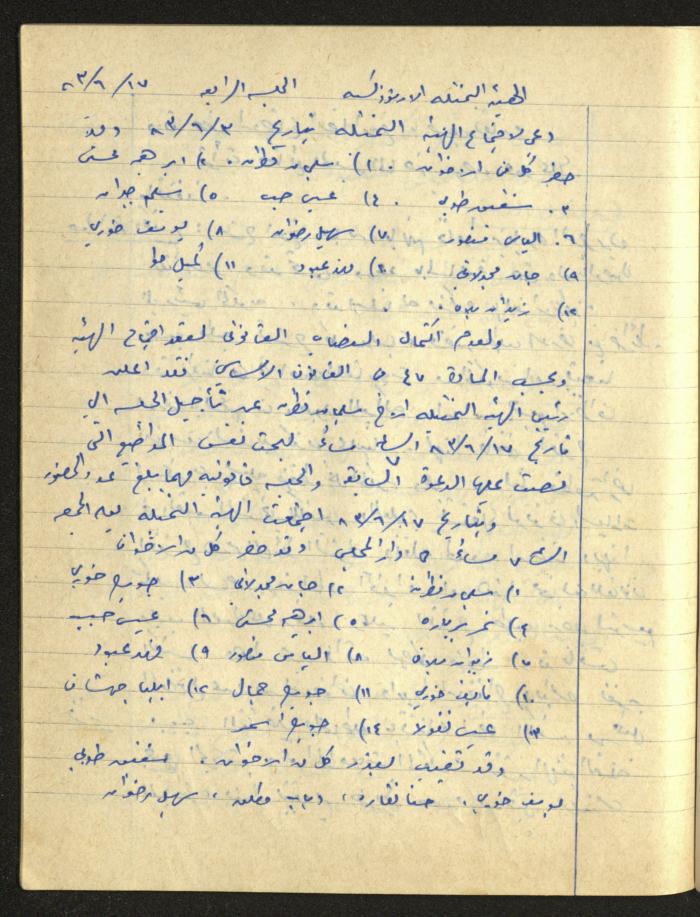 الهيئة التمثيلية الارثوذكسية الجلسة الرابعة ٨٣/٦/١٧
دعي لاجتماع الهيئة التمثيلية بتاريخ ٨٣/٦/٣ وقد
حضر كل من الاخوان. ١) سليم قطران. ٢) ابراهيم محسن
٣. شفيق طوبي. ٤) عيسى حبيب ٥) سليم جبران
٦. الياس منصور ٧) سهيل رضوان ٨) يوسف خوري
٩) جان مجدلاني ١٠) فهد عبود ١١) كميل
١٢) زيدان سلامه.
ولعدم اكتمال النصاب القانوني لعقد اجتماع الهيئة
وبحسب المادة ٤٧ من القانون الاساسي فقد اعلن
رئيس الهيئة التمثيلية الاخ سليم قطران عن تأجيل الجلسة الى
تاريخ ٨٣/٦/١٧ الساعة مساءً لبحث نفس المواضيع التي
نصت عليها الدعوة السابقة والجلسة قانونية مهما بلغ عدد الحضور
وبتاريخ ٨٣/٦/١٧ اجتمعت الهيئة التمثيلية يوم الجمعة
الساعة ٧ مساءً في دار المجلس وقد حضر كل من الاخوان
١) سليم قطران ٢) جان مجدلاني ٣) جوزيف خوري
٤) نمر ٥) ابراهيم محسن ٦) عيسى حبيب
٧) زيدان سلامه ٨) الياس منصور ٩) فهد عبود
١٠) نايف خوري ١١) جوزيف جمال ١٢) ايليا جهشان
١٣) عيسى نقولا ١٤) جوزيف اسعد
وقد تغيب بعذر كل من الاخوان، شفيق طوبي
يوسف خوري، حنا نقاره، سهيل رضوان